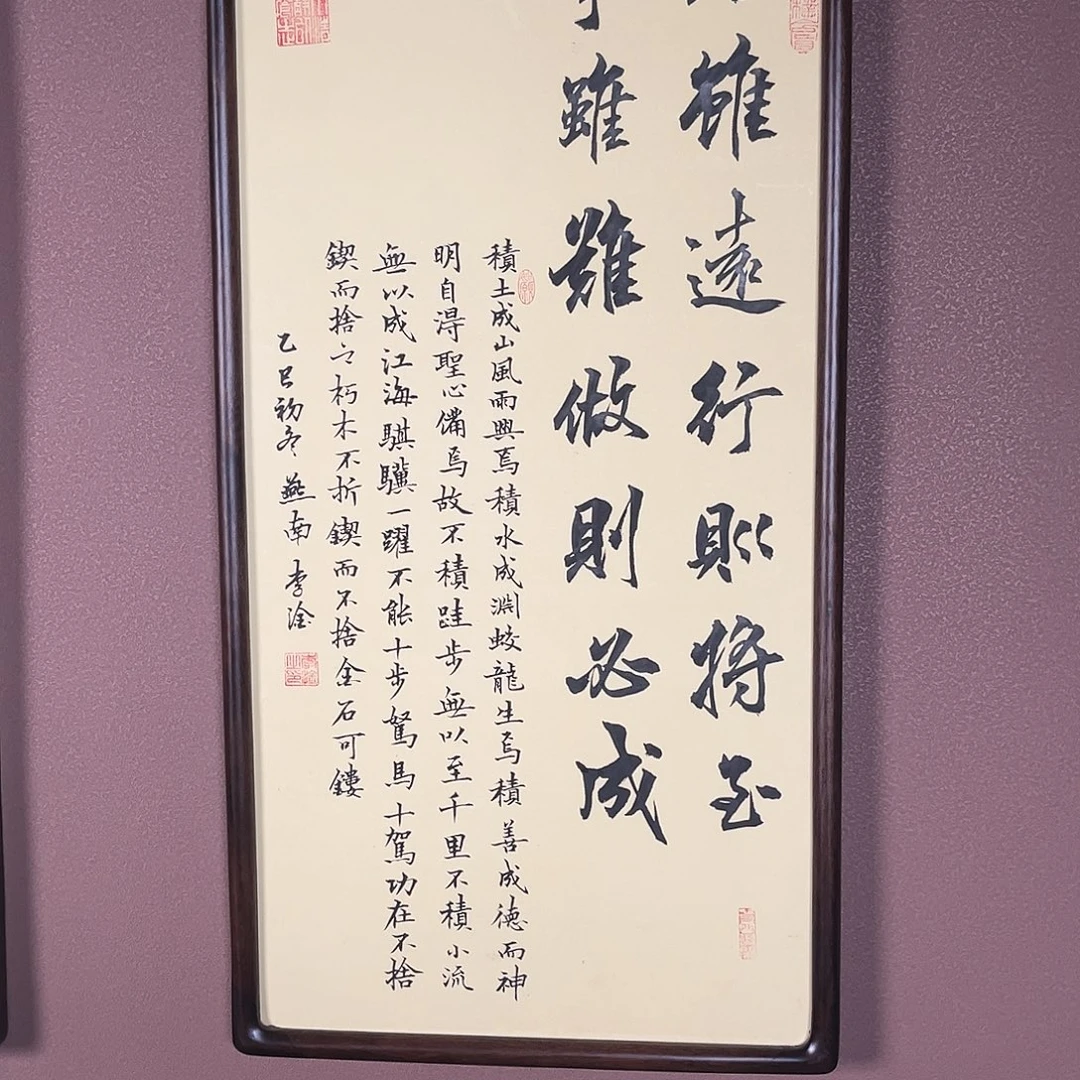 雖遠行則將至
雖難做則必成
積土成山風雨興焉積水成淵蛟龍生焉積善成德而神
明自得聖心備焉故不積跬步無以至千里不積小流
無以成江海騏驥一躍不能十步駑馬十駕功在不捨
鍥而捨之朽木不折鍥而不捨金石可鏤
乙巳初冬燕南李淦